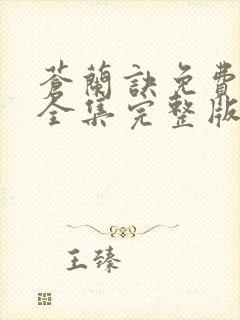 蒼蘭訣免費
全集完整版
王臻